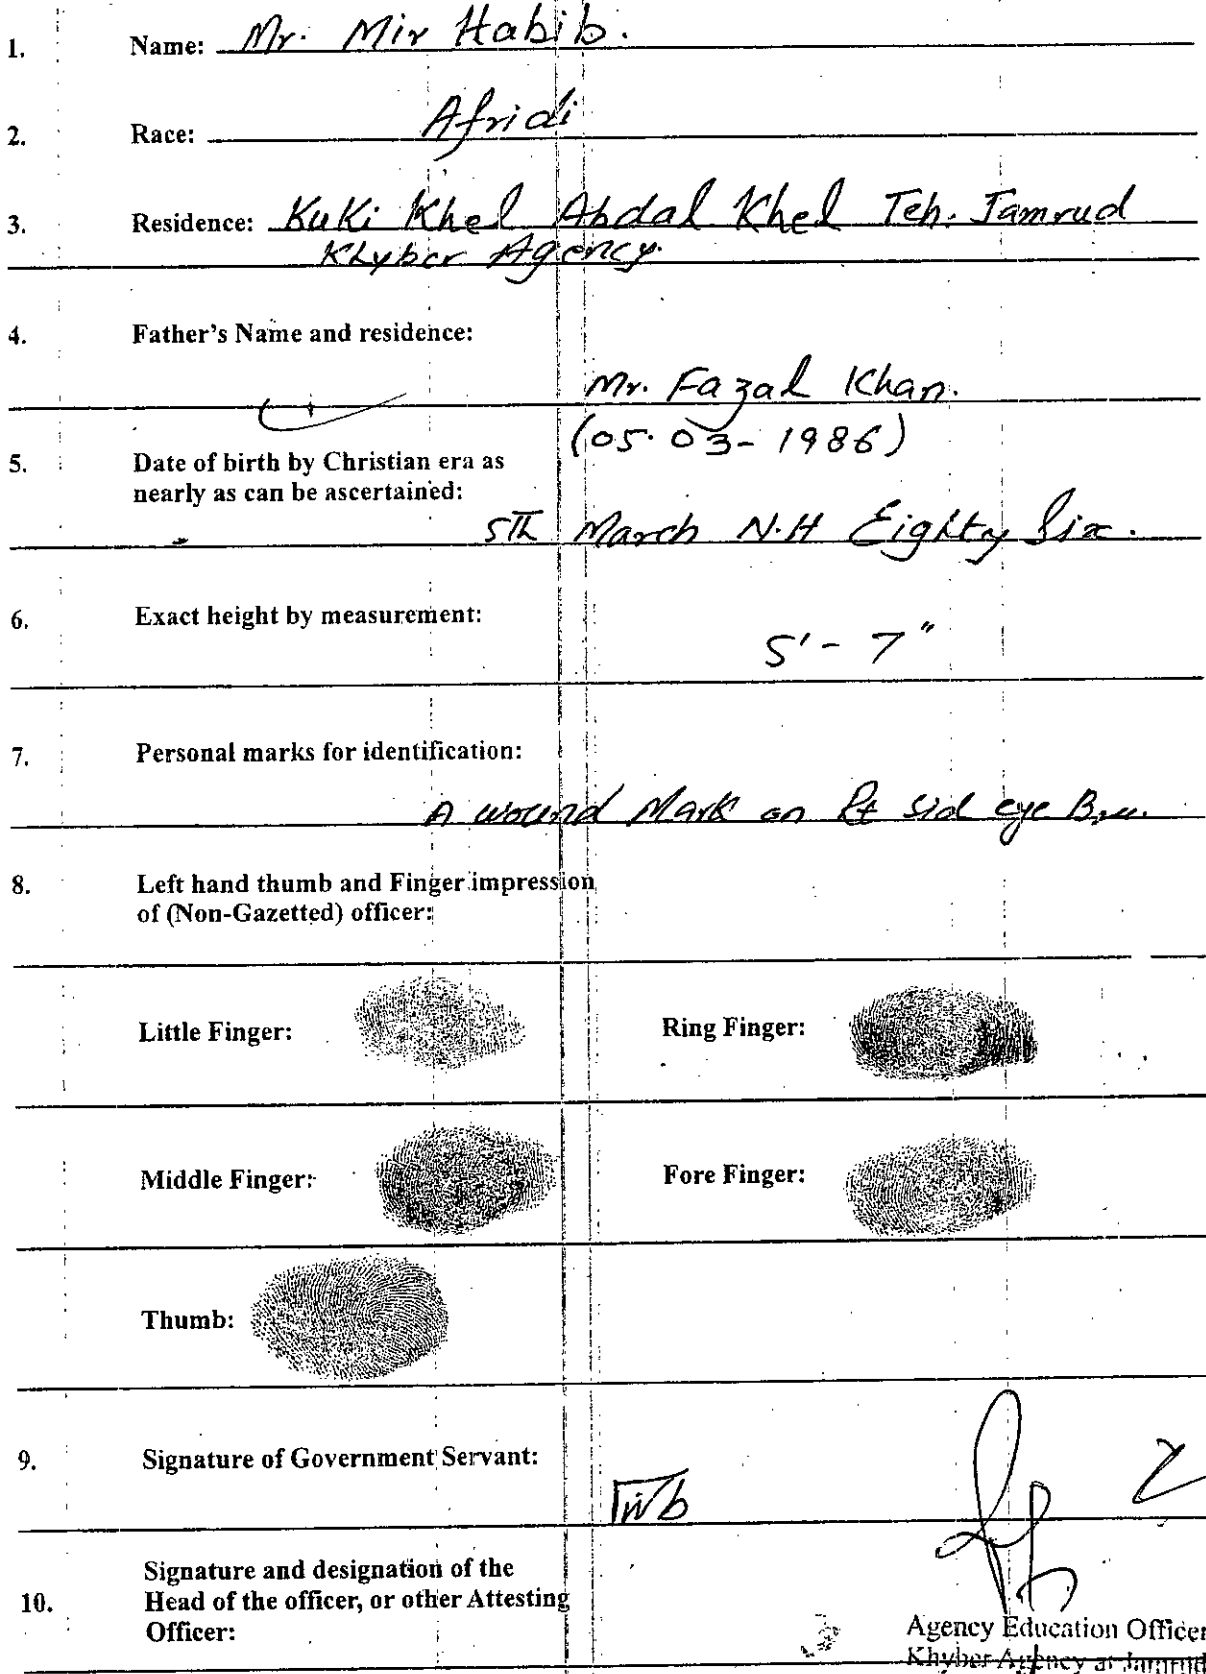 1. Name: Mr. Mir Habib.
2. Race: Afridi
3. Residence: Kuki Khel Abdal Khel Teh. Jamrud
Khyber Agency.
4. Father's Name and residence:
Mr. Fazal Khan.
(05.03-1986)
5. Date of birth by Christian era as
nearly as can be ascertained:
5th March N.H Eighty Six.
6. Exact height by measurement:
5'-7"
7. Personal marks for identification:
A wound Mark on Rt sid eye
8. Left hand thumb and Finger impression
of (Non-Gazetted) officer:
Little Finger: Ring Finger:
Middle Finger: Fore Finger:
Thumb:
9. Signature of Government Servant:
10. Signature and designation of the
Head of the officer, or other Attesting
Officer:
Agency Education Officer
Khyber Agency at Jamrud